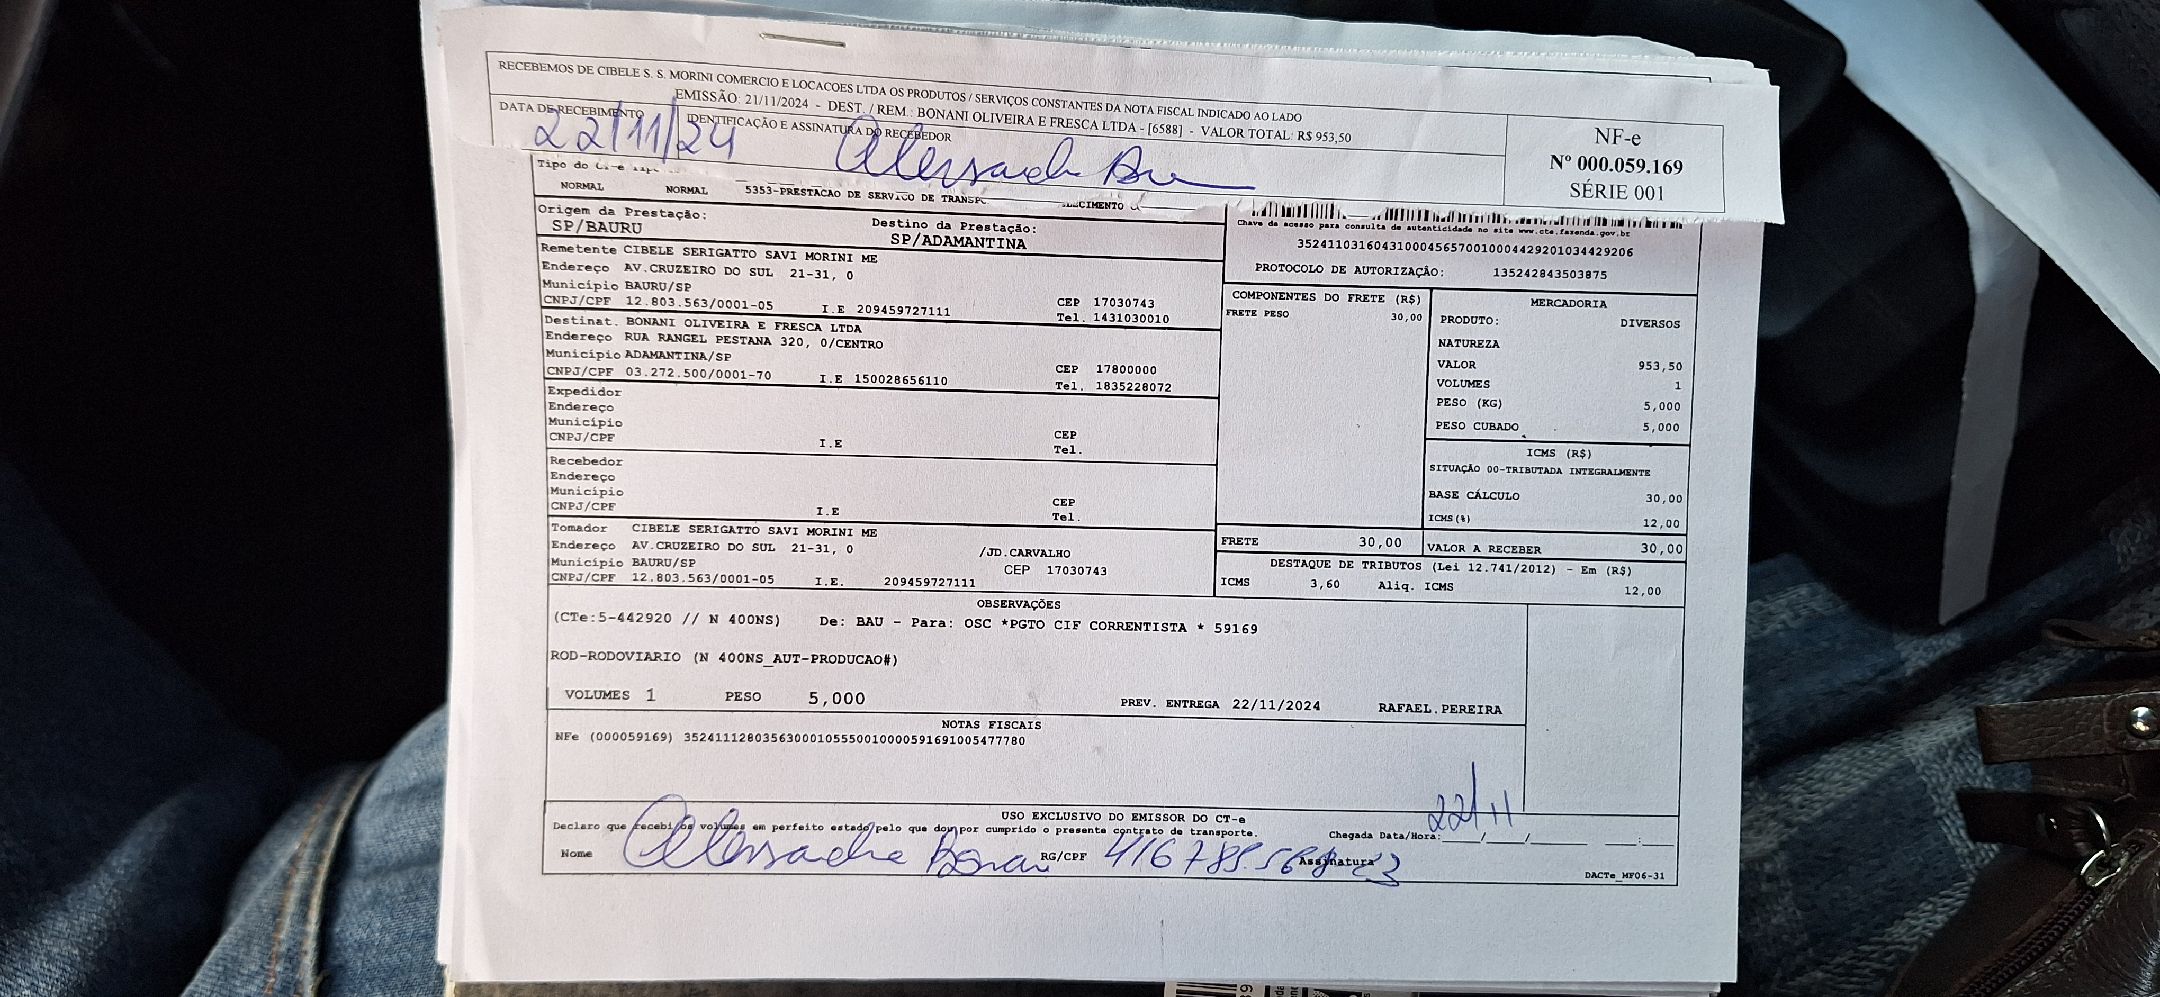 RECEBEMOS DE CIBELE S. S. MORINI COMERCIO E LOCACOES LTDA OS PRODUTOS / SERVIÇOS CONSTANTES DA NOTA FISCAL INDICADO AO LADO
EMISSÃO: 21/11/2024 - DEST. / REM.: BONANI OLIVEIRA E FRESCA LTDA - [6588] - VALOR TOTAL: R$ 953,50
DATA DE RECEBIMENTO IDENTIFICAÇÃO E ASSINATURA DO RECEBEDOR
22/11/24
NF-e
Nº 000.059.169
SÉRIE 001
Tipo do
NORMAL NORMAL 5353-PRESTACAO DE SERVICO DE TRANSPO
Origem da Prestação: Destino da Prestação:
SP/BAURU SP/ADAMANTINA
Chave de acesso para consulta de autenticidade no site www.cte.fazenda.gov.br
35241103160431000456570010004429201034429206
PROTOCOLO DE AUTORIZAÇÃO: 135242843503875
Remetente CIBELE SERIGATTO SAVI MORINI ME
Endereço AV.CRUZEIRO DO SUL 21-31, 0
Município BAURU/SP
CNPJ/CPF 12.803.563/0001-05 I.E 209459727111 CEP 17030743
Tel. 1431030010
Destinat. BONANI OLIVEIRA E FRESCA LTDA
Endereço RUA RANGEL PESTANA 320, 0/CENTRO
Município ADAMANTINA/SP
CNPJ/CPF 03.272.500/0001-70 I.E 150028656110 CEP 17800000
Tel. 1835228072
Expedidor
Endereço
Município
CNPJ/CPF I.E CEP
Tel.
Recebedor
Endereço
Município
CNPJ/CPF I.E CEP
Tel.
Tomador CIBELE SERIGATTO SAVI MORINI ME
Endereço AV.CRUZEIRO DO SUL 21-31, 0 /JD.CARVALHO
Município BAURU/SP CEP 17030743
CNPJ/CPF 12.803.563/0001-05 I.E. 209459727111
COMPONENTES DO FRETE (R$)
FRETE PESO 30,00
MERCADORIA
PRODUTO: DIVERSOS
NATUREZA
VALOR 953,50
VOLUMES 1
PESO (KG) 5,000
PESO CUBADO 5,000
ICMS (R$)
SITUAÇÃO 00-TRIBUTADA INTEGRALMENTE
BASE CÁLCULO 30,00
ICMS(%) 12,00
FRETE 30,00 VALOR A RECEBER 30,00
DESTAQUE DE TRIBUTOS (Lei 12.741/2012) - Em (R$)
ICMS 3,60 Aliq. ICMS 12,00
OBSERVAÇÕES
(CTe:5-442920 // N 400NS) De: BAU - Para: OSC *PGTO CIF CORRENTISTA * 59169
ROD-RODOVIARIO (N 400NS_AUT-PRODUCAO#)
VOLUMES 1 PESO 5,000 PREV. ENTREGA 22/11/2024 RAFAEL.PEREIRA
NOTAS FISCAIS
NFe (000059169) 35241112803563000105550010000591691005477780
22/11
USO EXCLUSIVO DO EMISSOR DO CT-e
Declaro que recebi os volumes em perfeito estado pelo que dou por cumprido o presente contrato de transporte. Chegada Data/Hora: ____/____/____ ____:____
Nome RG/CPF Assinatura
DACTe_MF06-31